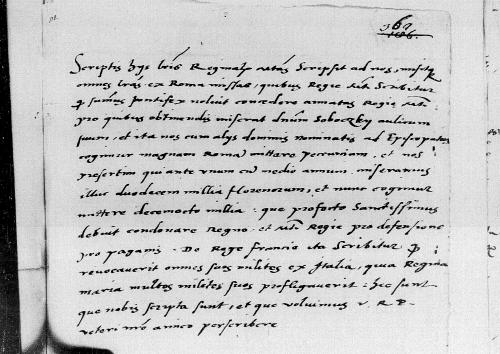 Scriptis hys lris Reginalis Mtas Scripsit ad nos, misitq
omnes lras ex Roma missas, quibus Regie Mti Scribitur
q summus pontifex noluit concedere annatas Regie Mti
pro quibus obtinendis miserat dnum Soboczky aulicum
suum, et ita nos cum alys dominis nominatis ad Episcopatus
cogimur magnam Romam mittere pecuniam, et nos
presertim qui ante unum cum medio annum miseramus
illuc duodecem millia florenorum, et nunc cogimur
mittere decemocto millia. que profecto Sanctissimus
debuit condonare Regno et Mti Regie pro defensione
pro paganis. De Rege Francie ita Scribitur q
revocaverit omnes suos milites ex Italia, quia Regina
maria multos milites suos profligaverit. hec sunt
que nobis scripta sunt, et que voluimus v. R. P.
veteri nro amico perscribere